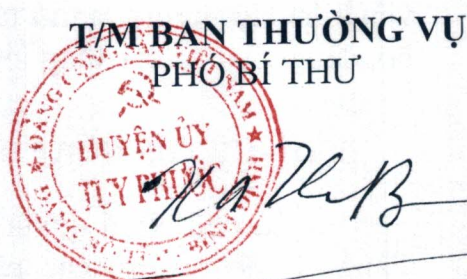 T/M BAN THƯỜNG VỤ
PHÓ BÍ THƯ
ĐẢNG CỘNG SẢN VIỆT NAM
HUYỆN ỦY
TUY PHƯỚC
BÌNH ĐỊNH